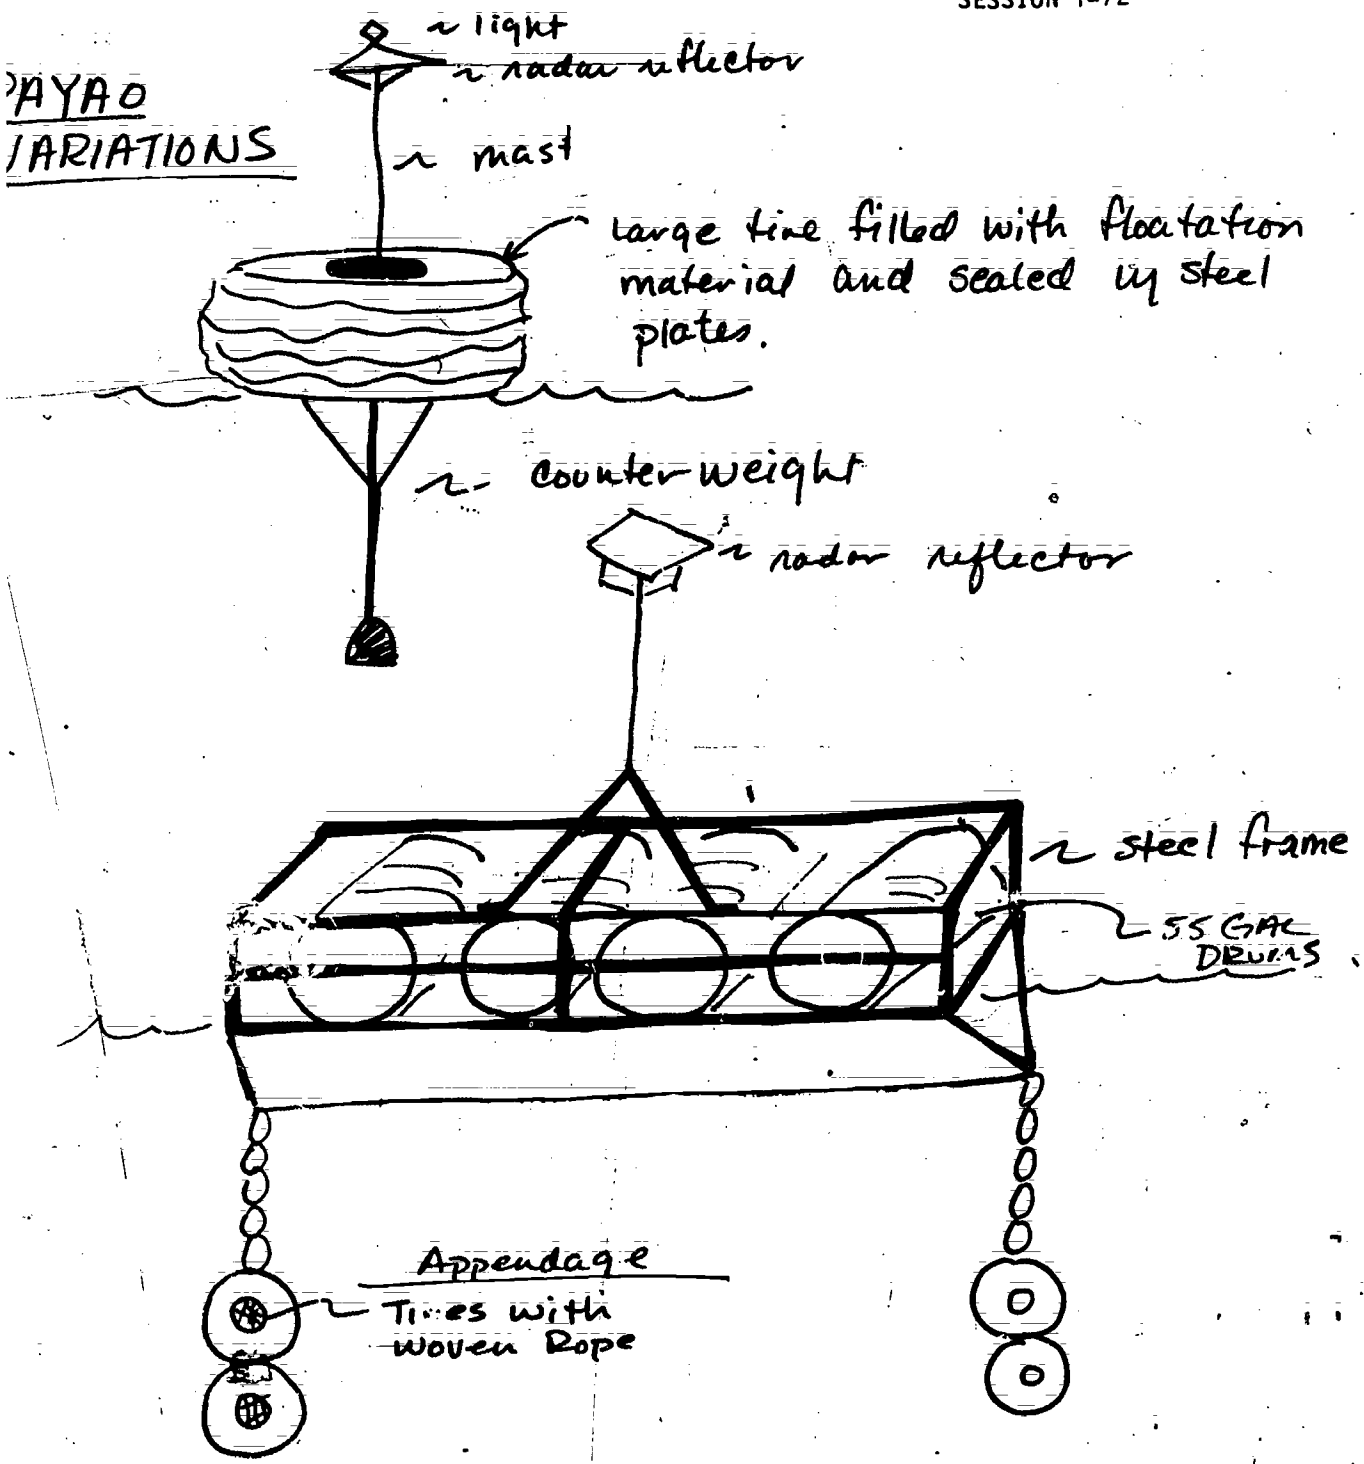 SESSION
PAYAO
VARIATIONS
~ light
~ radar reflector
~ mast
Large tire filled with floatation
material and sealed by steel
plates.
~ counter weight
~ radar reflector
~ steel frame
55 GAL
DRUMS
Appendage
Tires with
woven Rope